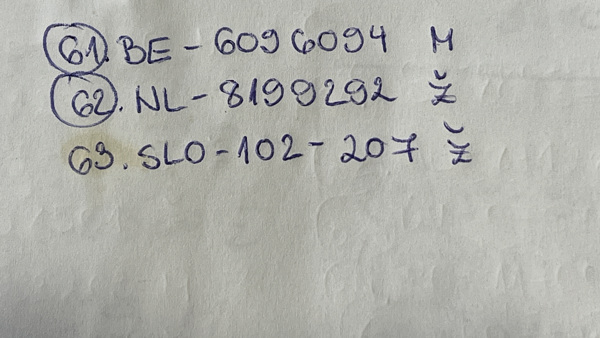 61. BE - 6096094 M
62. NL - 8199292 Ž
63. SLO - 102 - 207 Ž